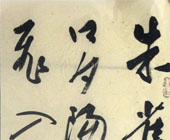 朱雀
口夕陽
飛入